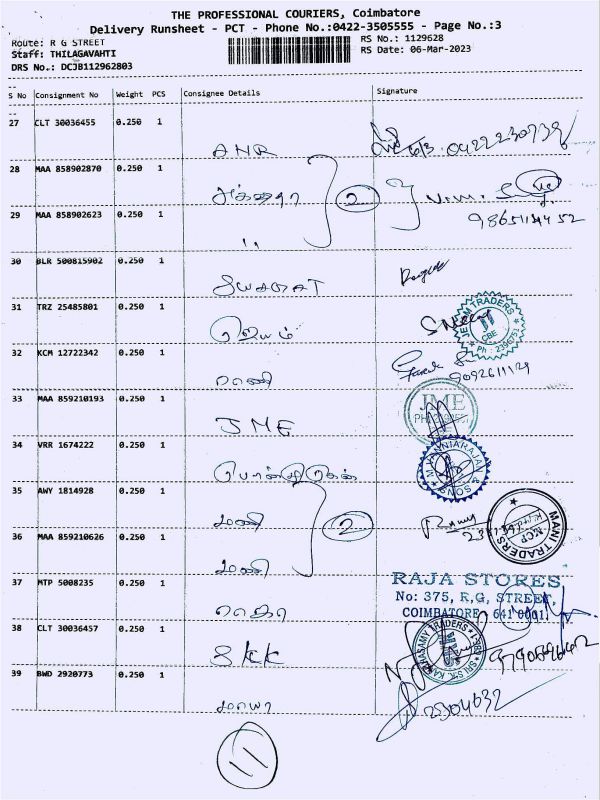 THE PROFESSIONAL COURIERS, Coimbatore
Delivery Runsheet - PCT - Phone No.:0422-3505555 - Page No.:3
Route: R G STREET
RS No.: 1129628
Staff: THILAGAVAHTI
RS Date: 06-Mar-2023
DRS No.: DCJB112962803
S No Consignment No Weight PCS Consignee Details Signature
27 CLT 30036455 0.250 1 ANR
28 MAA 858902870 0.250 1 2
29 MAA 858902623 0.250 1 "
30 BLR 500815902 0.250 1
31 TRZ 25485801 0.250 1 ஜெயம்
JEYAM TRADERS
CBE
32 KCM 12722342 0.250 1 ராணி 9092611129
33 MAA 859210193 0.250 1 JME
JME
34 VRR 1674222 0.250 1
& SONS
35 AWY 1814928 0.250 1 மணி 2
MANI TRADERS
36 MAA 859210626 0.250 1 மணி
37 MTP 5008235 0.250 1 ராஜா
RAJA STORES
No: 375, R.G, STREET,
COIMBATORE - 641 0001.
38 CLT 30036457 0.250 1 SKK
39 BWD 2920773 0.250 1 மாயா 2304632
11